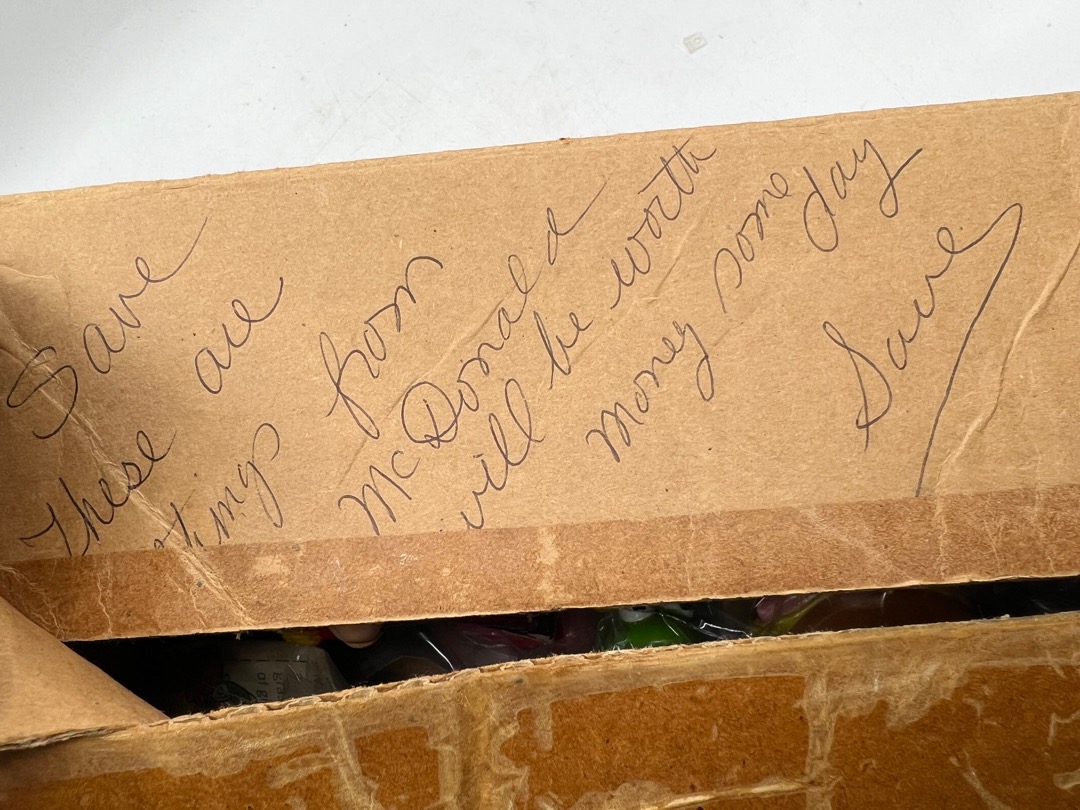 Save
These are
things from
McDonald
will be worth
money some day
Save